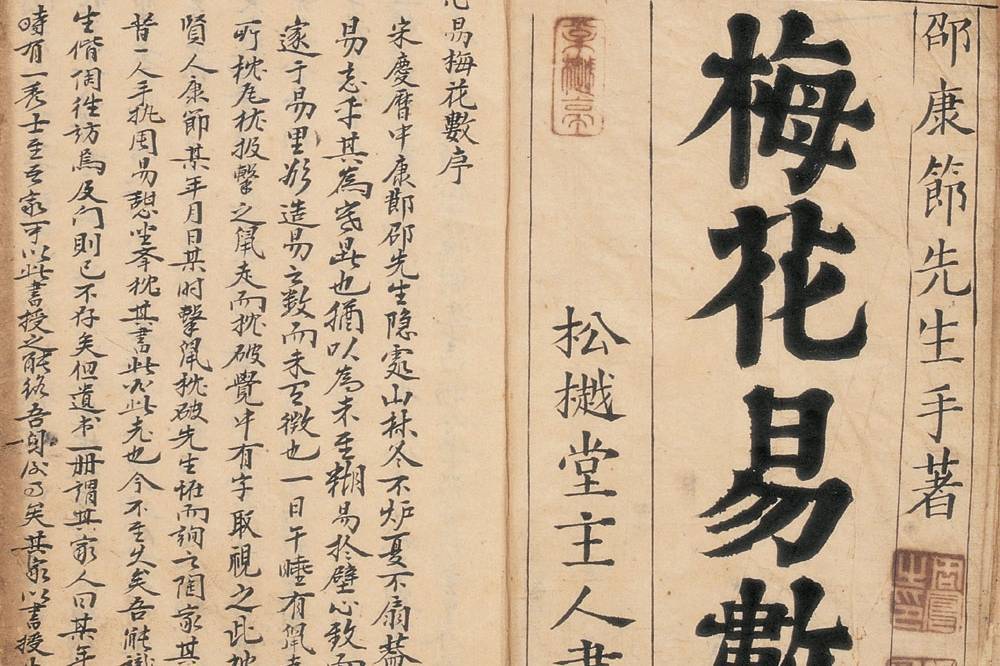 邵康節先生手著
梅花易數
松樾堂主人書
易梅花數序
宋慶曆中康節邵先生隐處山林冬不炉夏不扇蓋
易忘乎其為寒此也猶以為未至糊易於壁心致而
遂于易里欲造易之數而未有徵也一日午睡有鼠走
所枕瓦枕投擊之鼠走而枕破覺中有字取視之此枕
賢人康節某年月日某时擊鼠枕破先生怪而詢之陶家其
昔一人手执周易憩坐舉枕其書此必此老也今不至久矣吾能識
生偕陶徃訪焉及门則已不存矣但遺书一册謂其家人曰某年
時有一秀士至吾家可以此書授之能終吾身后事矣其家以書授